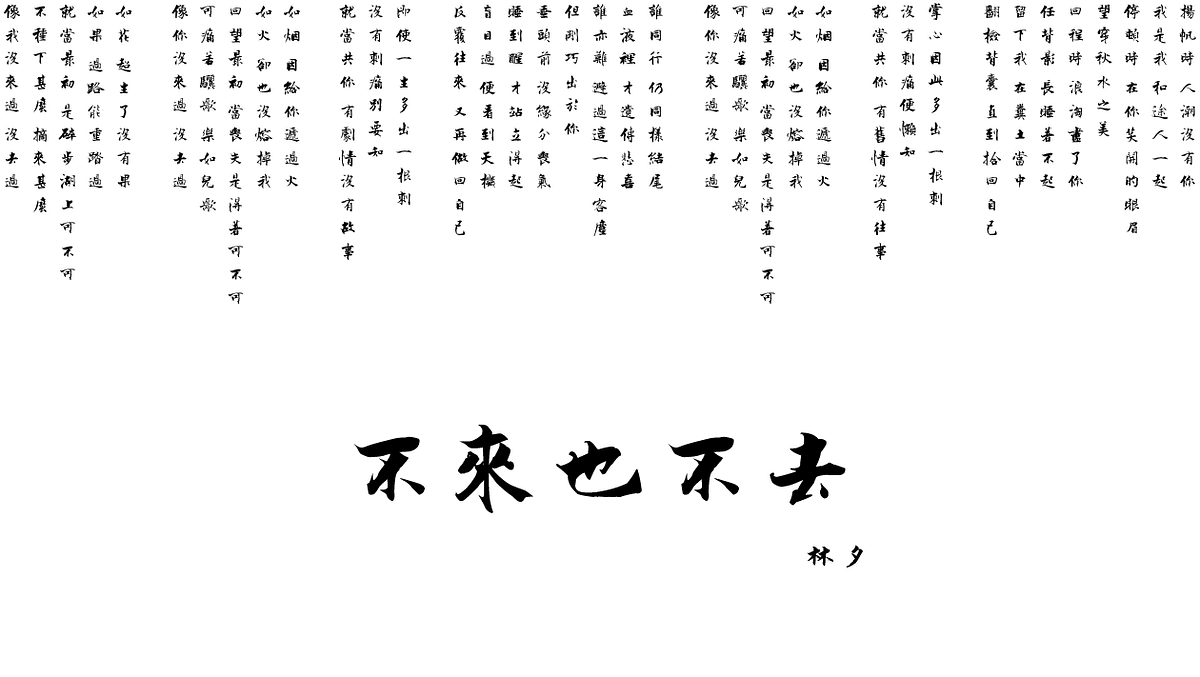 揚帆時 人潮沒有你
我是我 和途人一起
停頓時 在你笑開的眼眉
望穿秋水之美
回程時 浪淘盡了你
任背影 長睡著不起
留下我 在糞土當中
翻檢背囊 直到拾回自己
掌心因此多出一根刺
沒有刺痛便懶知
就當共你有舊情沒有往事
如烟因給你遞過火
如火 卻也沒熔掉我
回望最初 當喪失是得著可不可
可痛苦驪歌 樂如兒歌
像你沒來過 沒去過
誰同行 仍同樣結尾
血液裡 才遺傳悲喜
誰亦難 避過這一身客塵
但剛巧出於你
垂頭前 沒緣分喪氣
睡到醒 才站立得起
盲目過 便看到天機
反覆往來 又再做回自己
即使一生多出一根刺
沒有刺痛別要知
就當共你有劇情沒有故事
如烟因給你遞過火
如火 卻也沒熔掉我
回望最初 當喪失是得著可不可
可痛苦驪歌 樂如兒歌
像你沒來過 沒去過
如花 超生了沒有果
如果 過路能重踏過
就當最初 是碎步湖上可不可
不種下甚麼 摘來甚麼
像我沒來過 沒去過
不來也不去
林夕